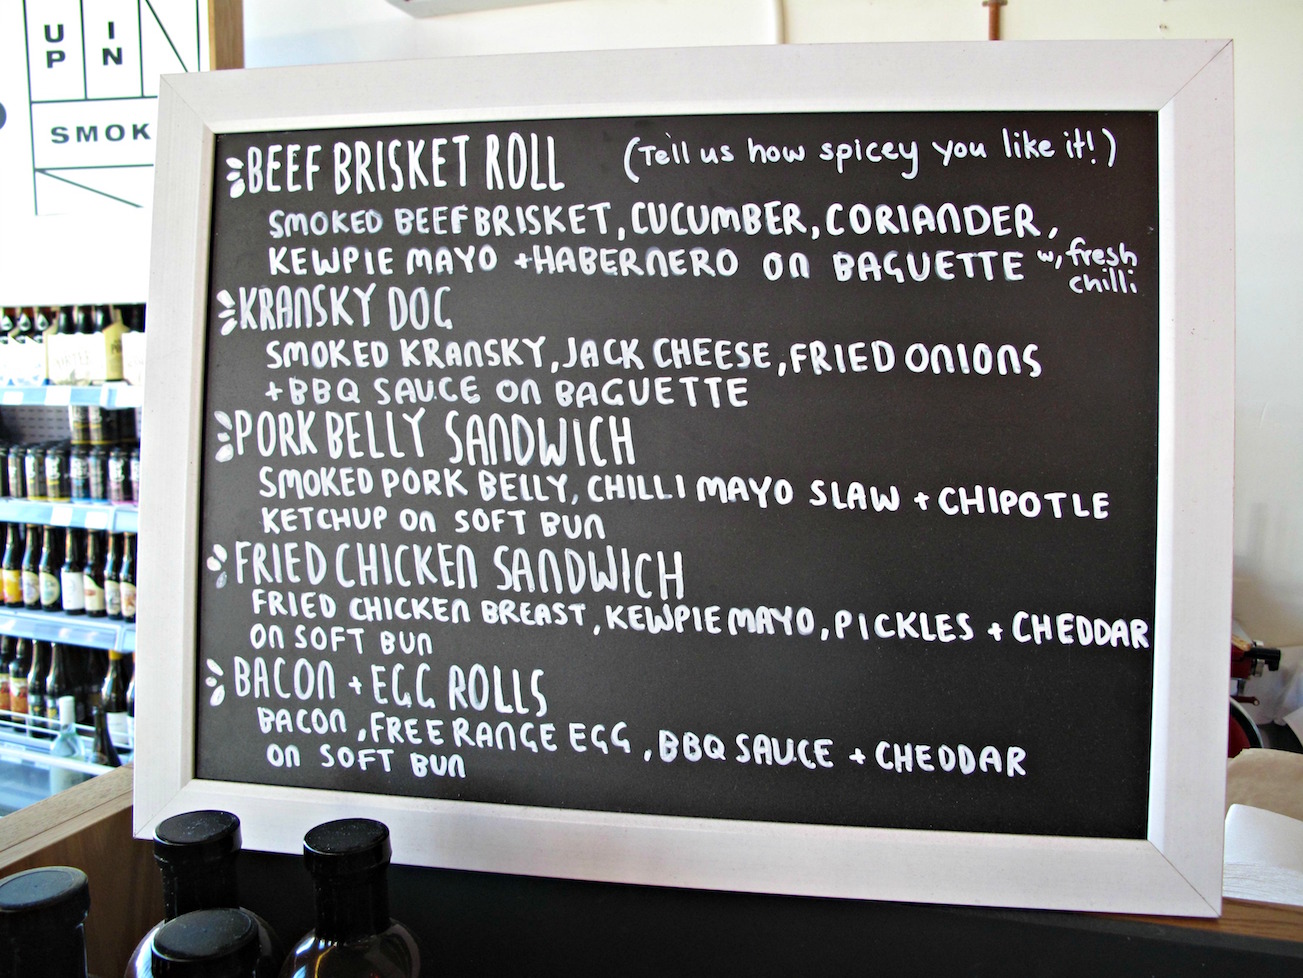 UP IN
SMOK
BEEF BRISKET ROLL (Tell us how spicey you like it!)
SMOKED BEEF BRISKET, CUCUMBER, CORIANDER,
KEWPIE MAYO + HABERNERO ON BAGUETTE w, fresh
chilli
KRANSKY DOG
SMOKED KRANSKY, JACK CHEESE, FRIED ONIONS
+ BBQ SAUCE ON BAGUETTE
PORK BELLY SANDWICH
SMOKED PORK BELLY, CHILLI MAYO SLAW + CHIPOTLE
KETCHUP ON SOFT BUN
FRIED CHICKEN SANDWICH
FRIED CHICKEN BREAST, KEWPIE MAYO, PICKLES + CHEDDAR
ON SOFT BUN
BACON + EGG ROLLS
BACON, FREE RANGE EGG, BBQ SAUCE + CHEDDAR
ON SOFT BUN